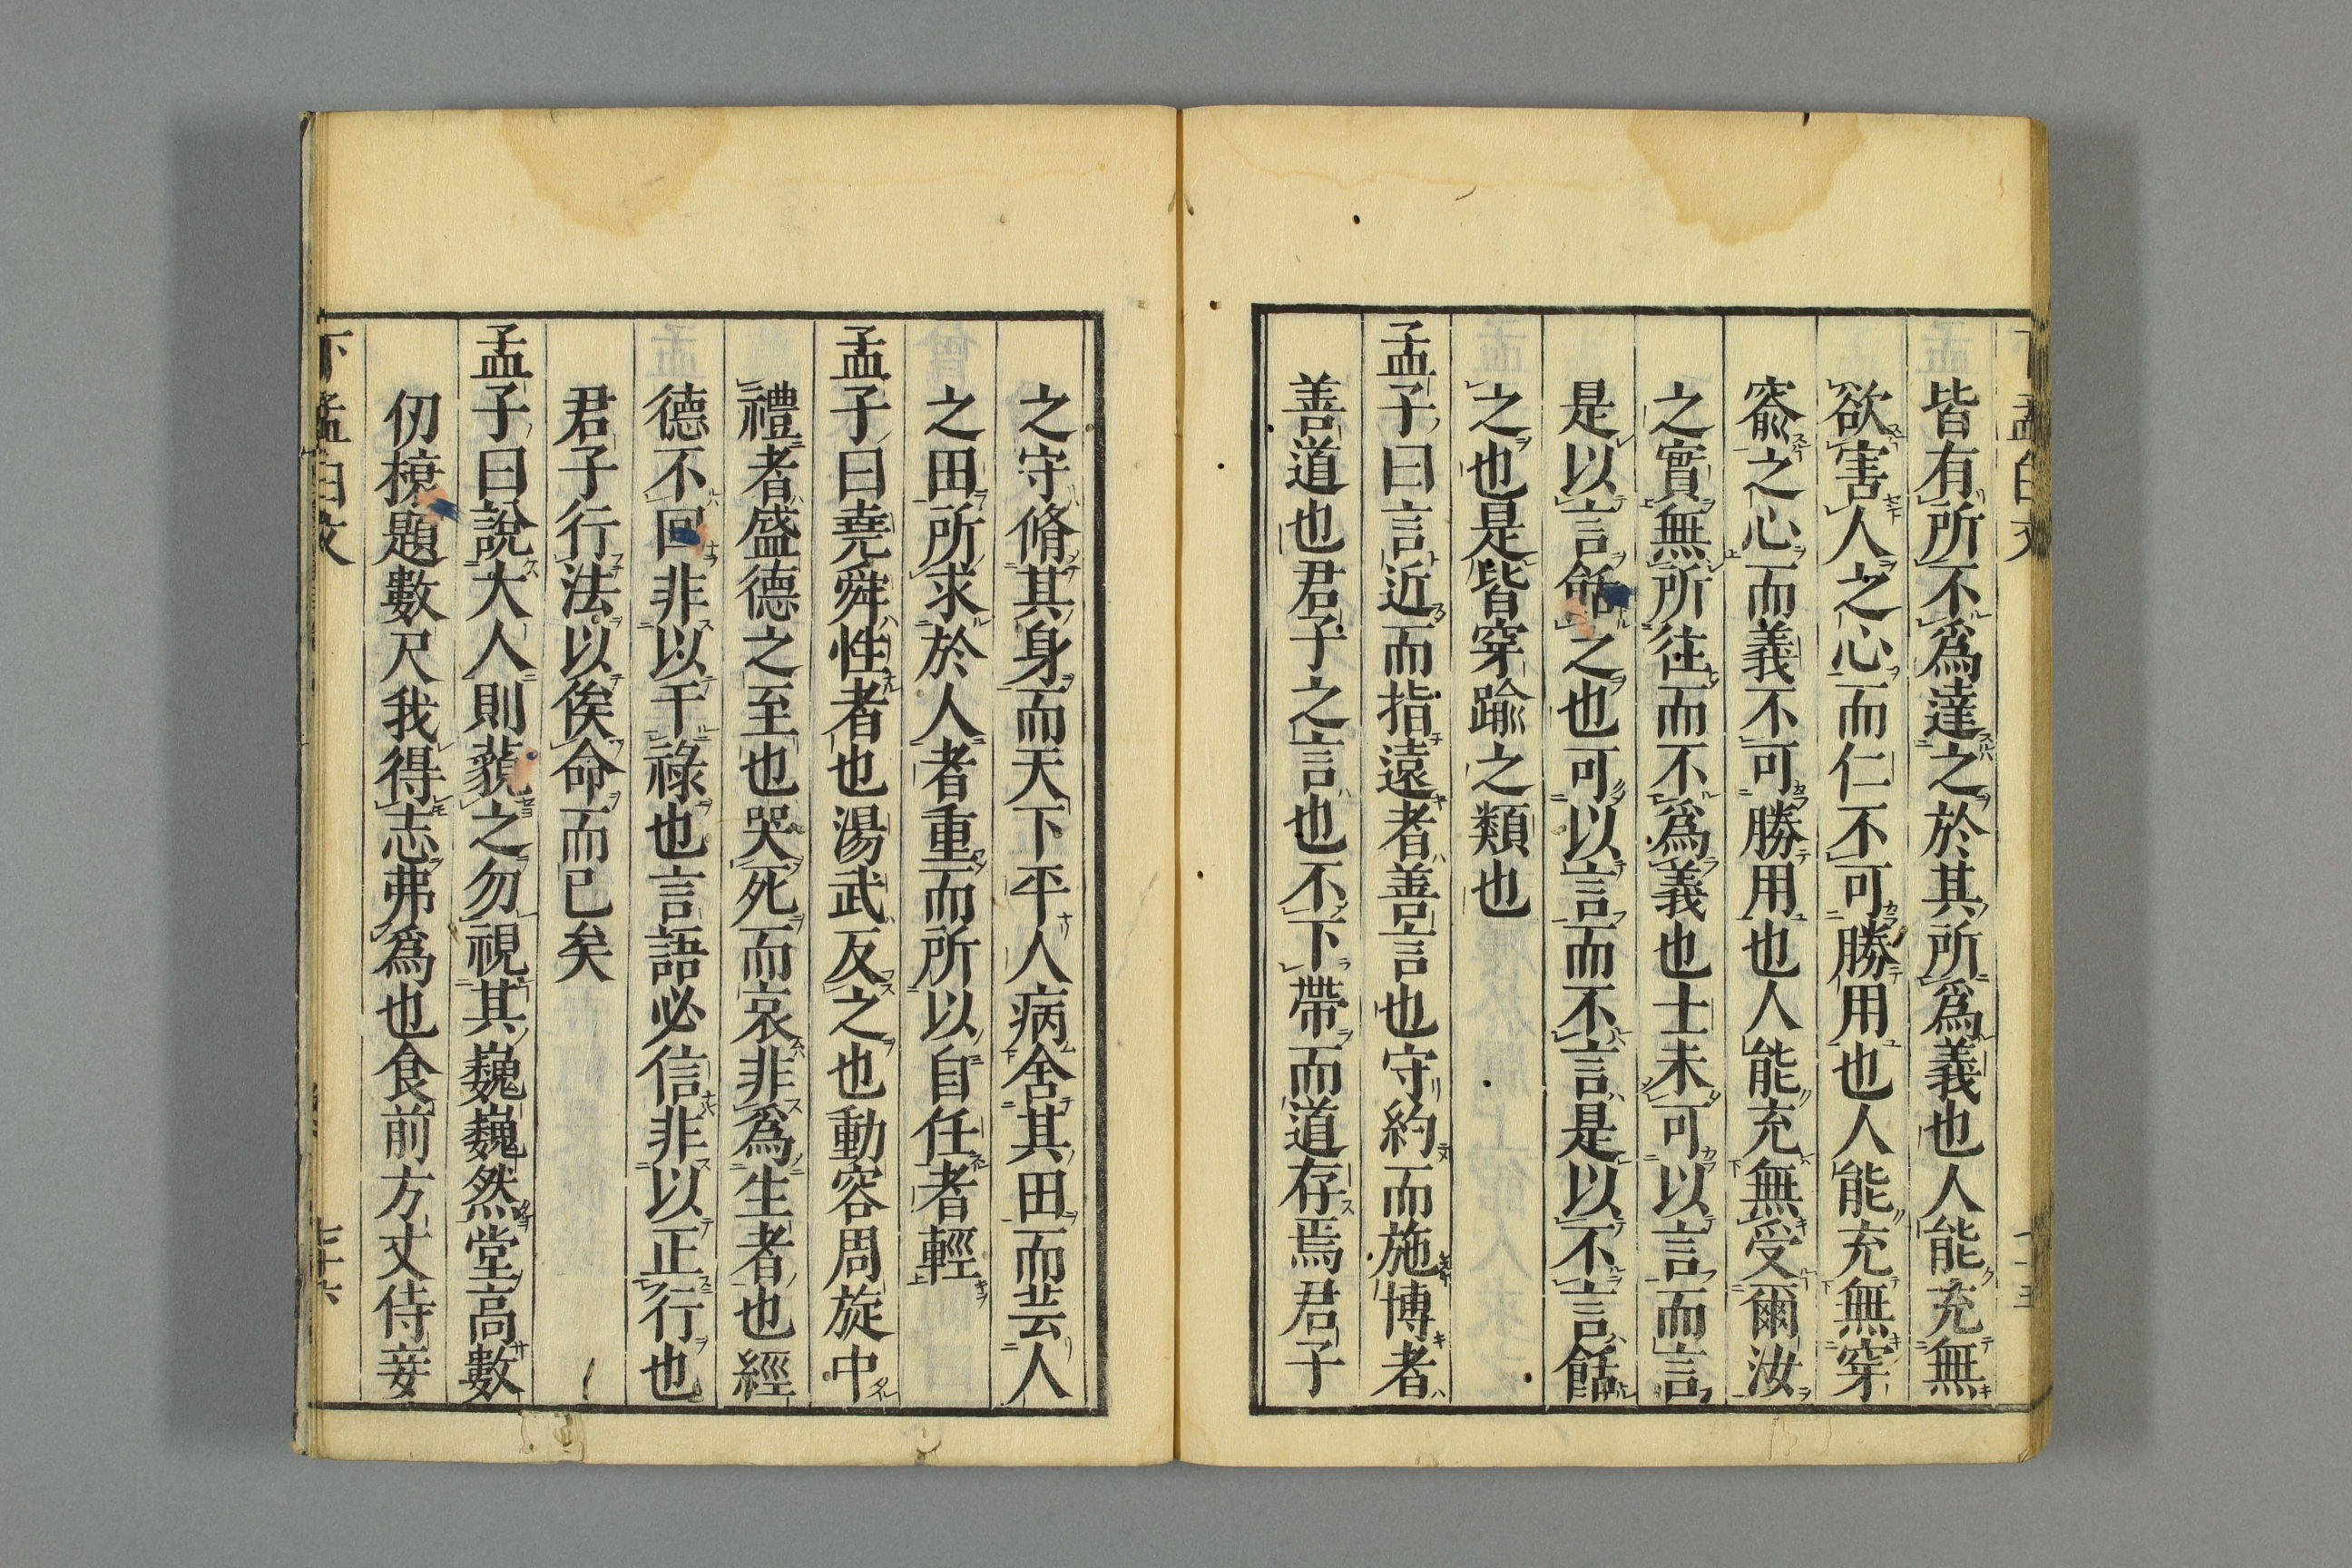 皆有所不爲達之於其所爲義也人能充無
欲害人之心而仁不可勝用也人能充無穿
窬之心而義不可勝用也人能充無受爾汝
之實無所往而不爲義也士未可以言而言
是以言餂之也可以言而不言是以不言餂
之也是皆穿踰之類也
孟子曰言近而指遠者善言也守約而施博者
善道也君子之言也不下帶而道存焉君子
之守脩其身而天下平人病舍其田而芸人
之田所求於人者重而所以自任者輕
孟子曰堯舜性者也湯武反之也動容周旋中
禮者盛德之至也哭死而哀非爲生者也經
德不回非以干祿也言語必信非以正行也
君子行法以俟命而已矣
孟子曰說大人則藐之勿視其巍巍然堂高數
仞榱題數尺我得志弗爲也食前方丈侍妾
下孟白文